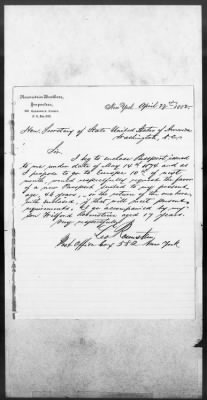 New York April 27th 1882.
Hon. Secretary of State United States of America
Washington, D.C.
Sir
I beg to enclose Passport issued
to me under date of May 14th 1874 and as
I propose to go to Europe 10th of next
month, would respectfully request the favor
of a new Passport suited to my present
age, 46 years, in the return of the one here-
with enclosed, if that will meet present
requirements. I go accompanied by my
son Wilfred aged 17 years.
Very respectfully
Post Office Box New York